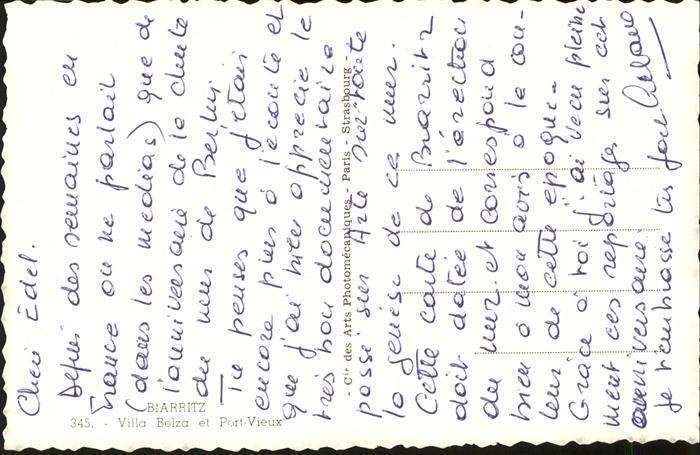 Chère Edel.
Depuis des semaines en
France on ne parlait
(dans les médias) que de
l'anniversaire de la chute
du mur de Berlin
Tu penses que j'étais
encore plus à l'écoute et
que j'ai bien apprécié le
très bon documentaire
passé sur Arte sur toute
la genèse de ce mur.
Cette carte de Biarritz
doit datée de l'érection
du mur et correspond
bien à mon avis à la cou-
leur de cette époque.
Grâce à toi j'ai vécu pleine
ment ces reportages sur cet
anniversaire
je t'embrasse très fort
- Cie des Arts Photomécaniques - Paris - Strasbourg -
BIARRITZ
345. - Villa Belza et Port-Vieux